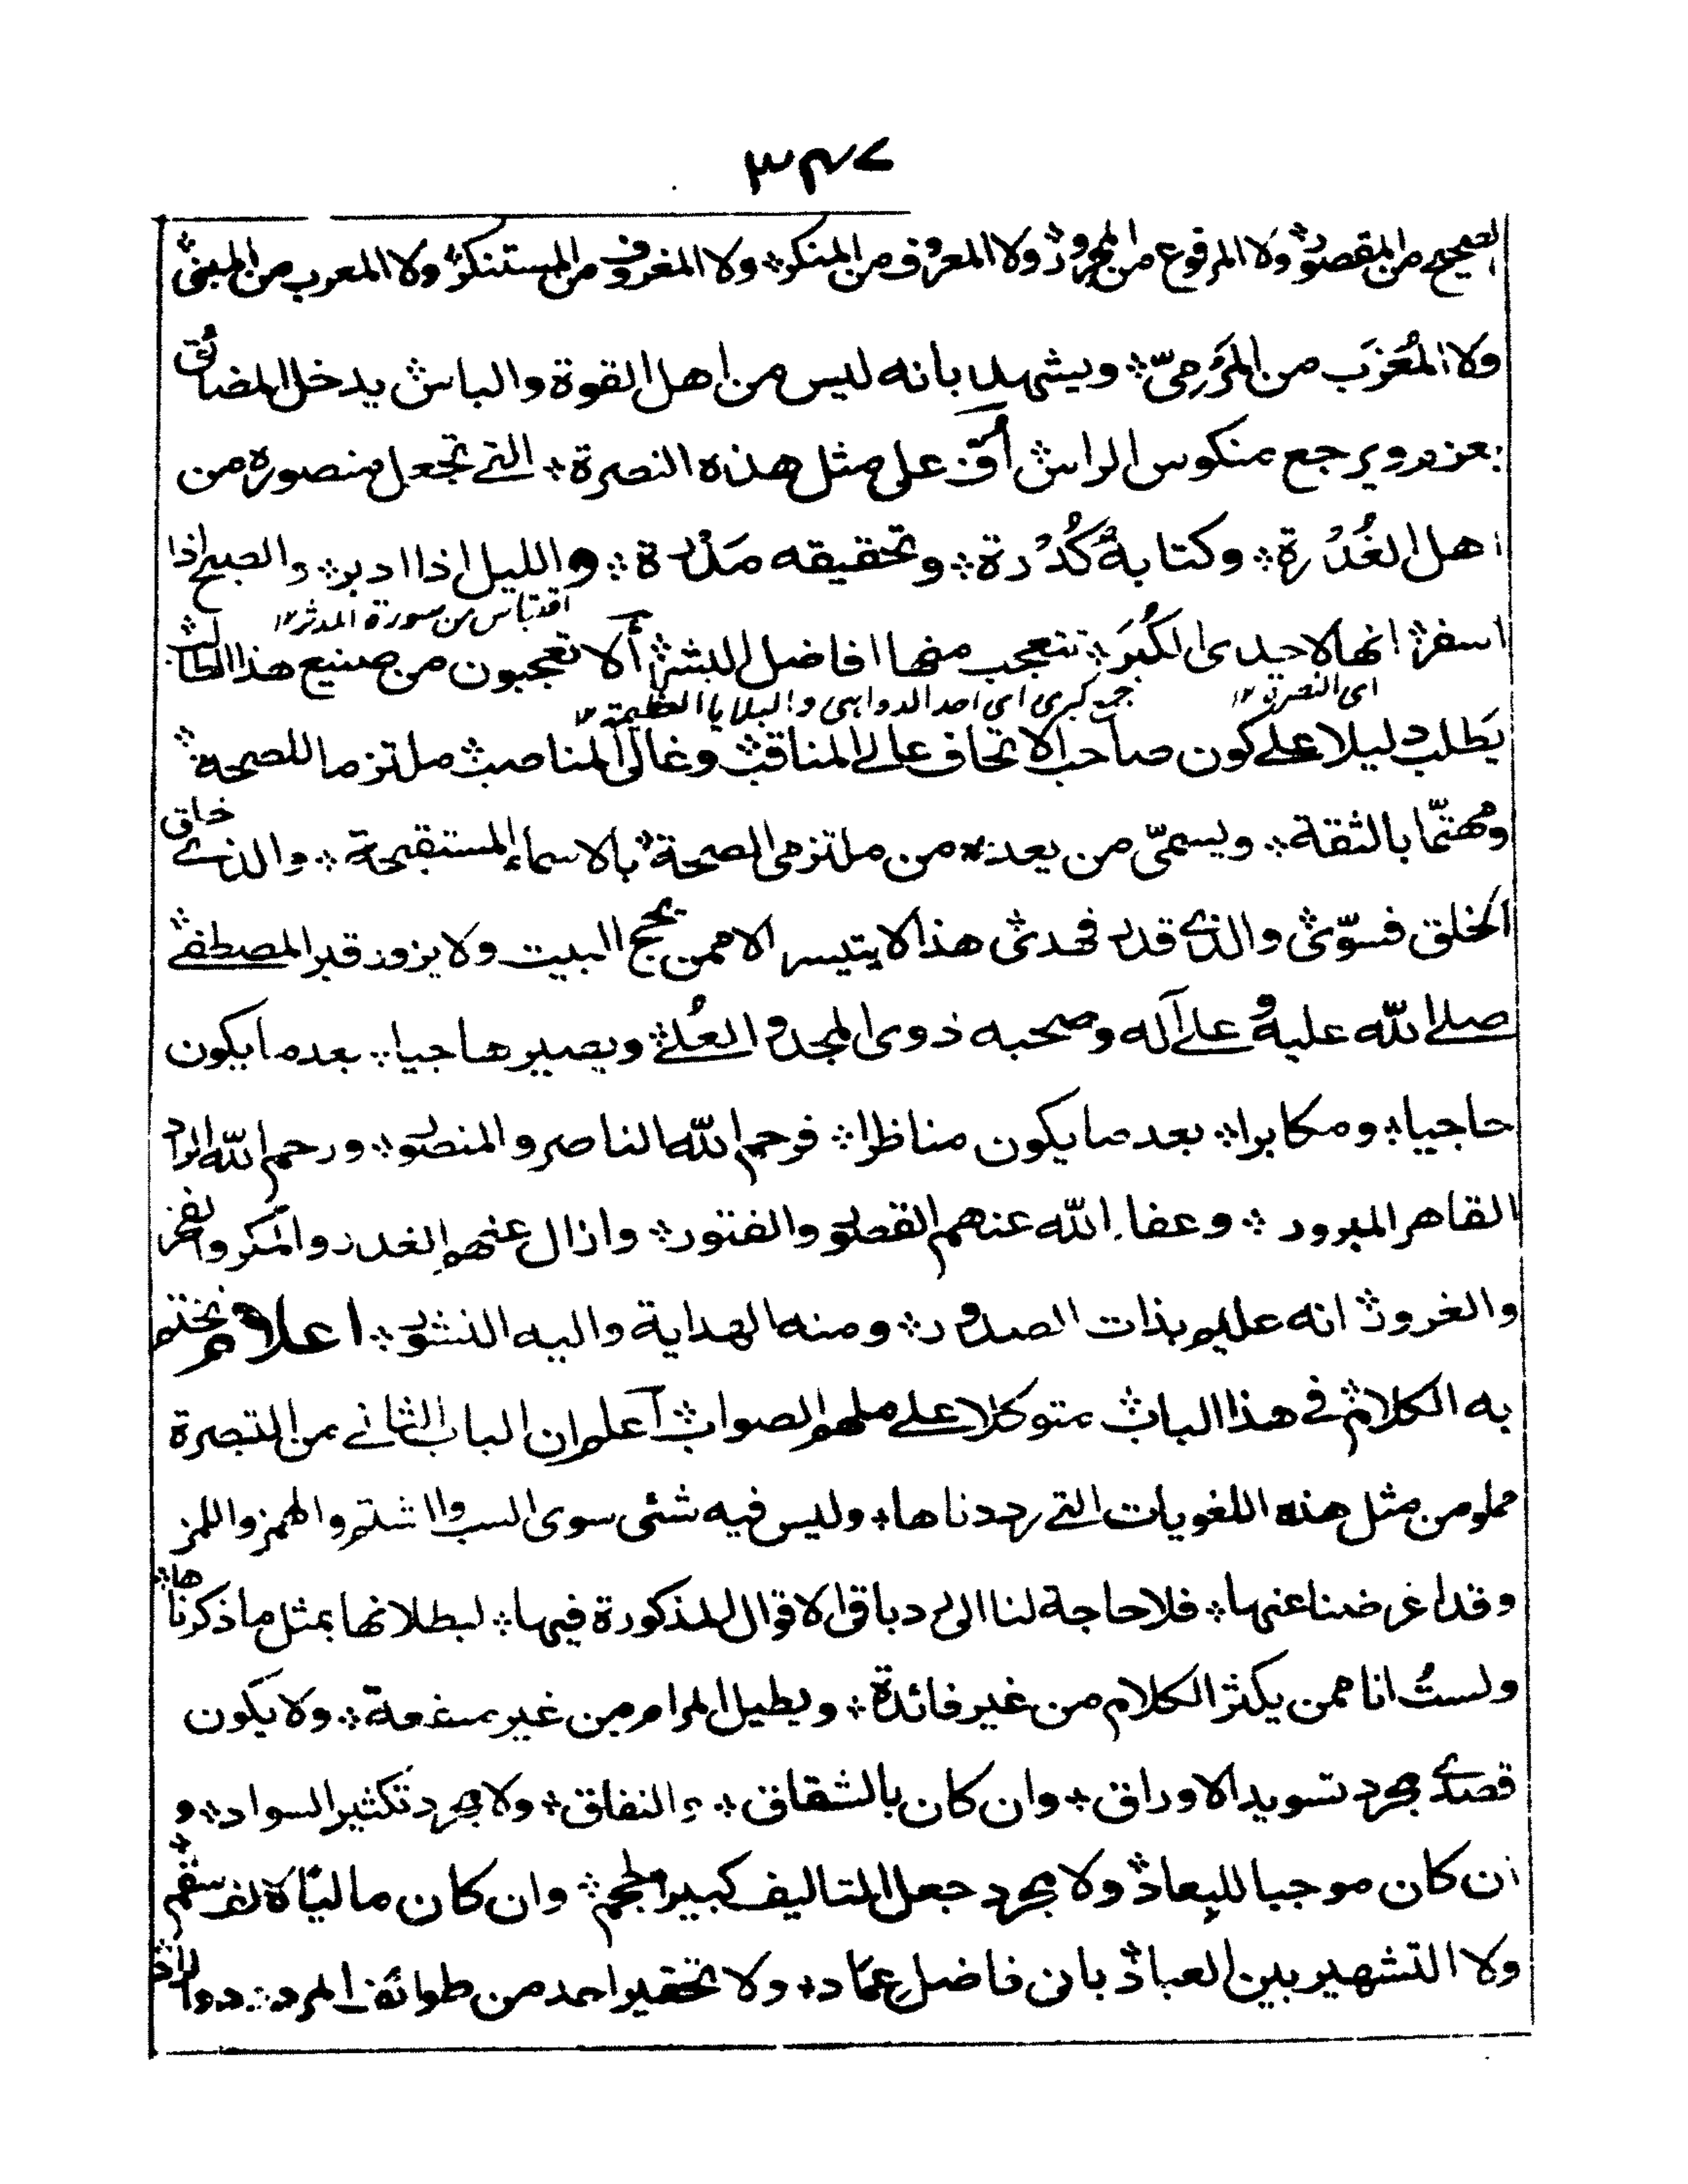 ٣٤٧
الصحيح من المقصور ولا المرفوع من المجرور ولا المعروف من المنكر ولا المغروف من المستنكر ولا المعرب من المبنى
ولا المُعْزَب من المَرْمِىّ ويشهد بانه ليس من اهل القوة والباس يدخل المضائق
بعزم ويرجع منكوس الراس اُف على مثل هذه النصرة التے تجعل منصوره من
اهل الغُدْرة وكتابةٌ كُدْرة وتحقيقه مَدْرة والليل اذا ادبر والصبح اذا
اقتباس من سورة المدثر ١٢
اسفر انها لاحدى الكُبَر تتعجب منها افاضل البشر اَلا تعجبون من صنيع هذا الطالب
اى النصرة ١٢ جمع كبرى اى احد الدواهى والبلايا العظيمة ١٢
يَطلب دليلا علے كون صاحب الاتحاف عالے المناقب وغالى المناصب ملتزما للصحة
ومهتمّا بالثقة ويسمىّ من يعده من ملتزمى الصحة بالاسماء المستقبحة والذے خلق
الخلق فسوّى والذے قدر فهدى هذا لا يتيسر الا ممن يحج البيت ولا يزور قبر المصطفے
صلے اللّٰه عليه وعلے آله وصحبه ذوى المجد والعُلے ويصير هاجيا بعد ما يكون
حاجيا ومكابرا بعد ما يكون مناظرا فرحم اللّٰه الناصر والمنصور ورحم اللّٰه الراد
القاهر المبرور وعفا اللّٰه عنهم القصور والفتور وازال عنهم الغدر والمكر والفخر
والغرور انه عليم بذات الصدور ومنه الهداية واليه النشور اعلام نختم
به الكلام فى هذا الباب متوكلا علے ملهم الصواب اعلم ان الباب الثانے من التبصرة
مملو من مثل هذه اللغويات التے رددناها وليس فيه شئى سوى السب والشتم والهمز واللمز
وقد اعرضنا عنها فلا حاجة لنا الى رد باقى الاقوال المذكورة فيها لبطلانها بمثل ما ذكرناها
ولستُ انا ممن يكثر الكلام من غير فائدة ويطيل المرام من غير منفعة ولا يكون
قصدے مجرد تسويد الاوراق وان كان بالشقاق والنفاق ولا مجرد تكثير السواد و
ان كان موجبا للبعاد ولا مجرد جعل التاليف كبير الحجم وان كان ماليًا لا
ولا التشهير بين العباد بانى فاضل عمّاد ولا تحقير احد من طوائف